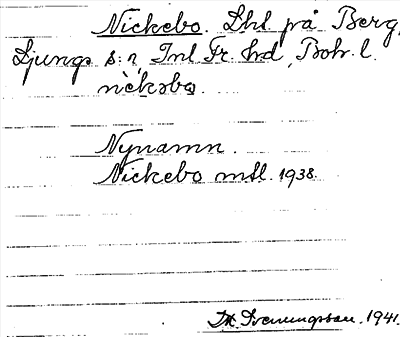 Nickebo. Lhl på Berg,
Ljungs s:n, Inl. Fr. hd, Boh. l.
nìckəbo.
Nynamn.
Nickebo mtl. 1938.
1941.